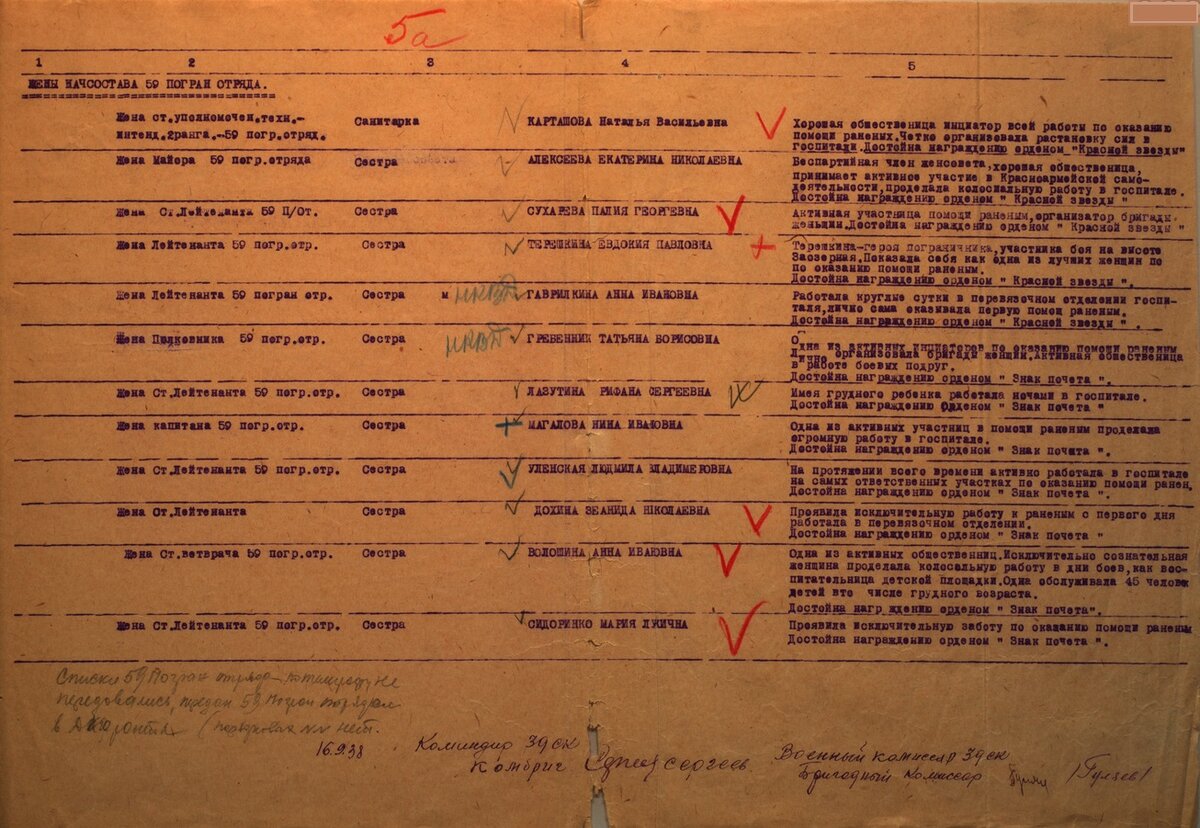 5а
1 2 3 4 5
ЖЕНЫ НАЧСОСТАВА 59 ПОГРАН ОТРЯДА.
Жена ст.уполномочен.техн.- Санитарка КАРТАШОВА Наталья Васильевна Хорошая общественица инциатор всей работы по оказанию
интенд.2ранга.-59 погр.отряд. помощи раненых.Четко организовала растановку сил в
госпитали.Достойна награждению орденом "Красной звезды"
Жена Майора 59 погр.отряда Сестра АЛЕКСЕЕВА ЕКАТЕРИНА НИКОЛАЕВНА Беспартийная член женсовета,хорошая общественица,
принимает активное участие в Красноармейской само-
деятельности,проделала колосиальную работу в госпитале.
Достойна награждению орденом " Красной звезды "
Жена Ст.Лейтенанта 59 П/От. Сестра СУХАРЕВА ПАЛИЯ ГЕОРГЕВНА Активная участница помощи раненым,организатор бригады
женьщин.Достойна награждению орденом " Красной звезды "
Жена Лейтенанта 59 погр.отр. Сестра ТЕРЕШКИНА ЕВДОКИЯ ПАВЛОВНА Терешкина-героя пограничника,участника боя на высоте
Заозерная.Показала себя как одна из лучших женщин по
по оказанию помощи раненым.
Достойна награждению орденом " Красной звезды ".
Жена Лейтенанта 59 погран отр. Сестра м НКВД ГАВРИЛКИНА АННА ИВАНОВНА Работала круглые сутки в перевязочном отделении госпи-
таля,лично сама оказивала первую помощ раненым.
Достойна награждению орденом " Красной звезды ".
Жена Полковника 59 погр.отр. Сестра НКВД ГРЕБЕННИК ТАТЬЯНА БОРИСОВНА О
Одна из активних инциаторов по оказанию помощи раненым
Лично организовала бригады женщин.Активная общественица
в работе боевых подруг.
Достойна награждению орденом " Знак почета ".
Жена Ст.Лейтенанта 59 погр.отр. Сестра ЛАЗУТИНА РИФАНА СЕРГЕЕВНА Имея грудного ребенка работала ночами в госпитале.
Достойна награждению орденом " Знак почета "
Жена капитана 59 погр.отр. Сестра МАГАЛОВА НИНА ИВАНОВНА Одна из активных участниц в помощи раненым проделала
огромную работу в госпитале.
Достойна награждению орденом " Знак почета ".
Жена Ст.Лейтенанта 59 погр.отр. Сестра УЛЕНСКАЯ ЛЮДМИЛА ВЛАДИМЕРОВНА На протяжении всего времени активно работала в госпитале
на самых ответственных участках по оказанию помощи ранен.
Достойна награждению орденом " Знак почета ".
Жена Ст.Лейтенанта Сестра ДОХИНА ЗЕАНИДА НИКОЛАЕВНА Проявила исключительную работу к раненым с первого дня
работала в перевязочном отделении.
Достойна награждению орденом " Знак почета "
Жена Ст.ветврача 59 погр.отр. Сестра ВОЛОШИНА АННА ИВАНОВНА Одна из активных общественниц.Исключительно сознательная
женщина проделала колосальную работу в дни боев,как вос-
питательница детской площадки.Одна обслуживала 45 человек
детей вто числе грудного возраста.
Достойна нагр ждению орденом " Знак почета".
Жена Ст.Лейтенанта 59 погр.отр. Сестра СИДОРИНКО МАРИЯ ЛУКИЧНА Проявила исключительную заботу по оказанию помощи раненым
Достойна награждению орденом " Знак почета ".
Списки 59 Погран отряда не
передовались, 59 Погран
в нет.
16.9.38 Командир 39 ск Военный комиссар 39 ск
Комбриг Сергеев Бригадный Комиссар /Гуляев/